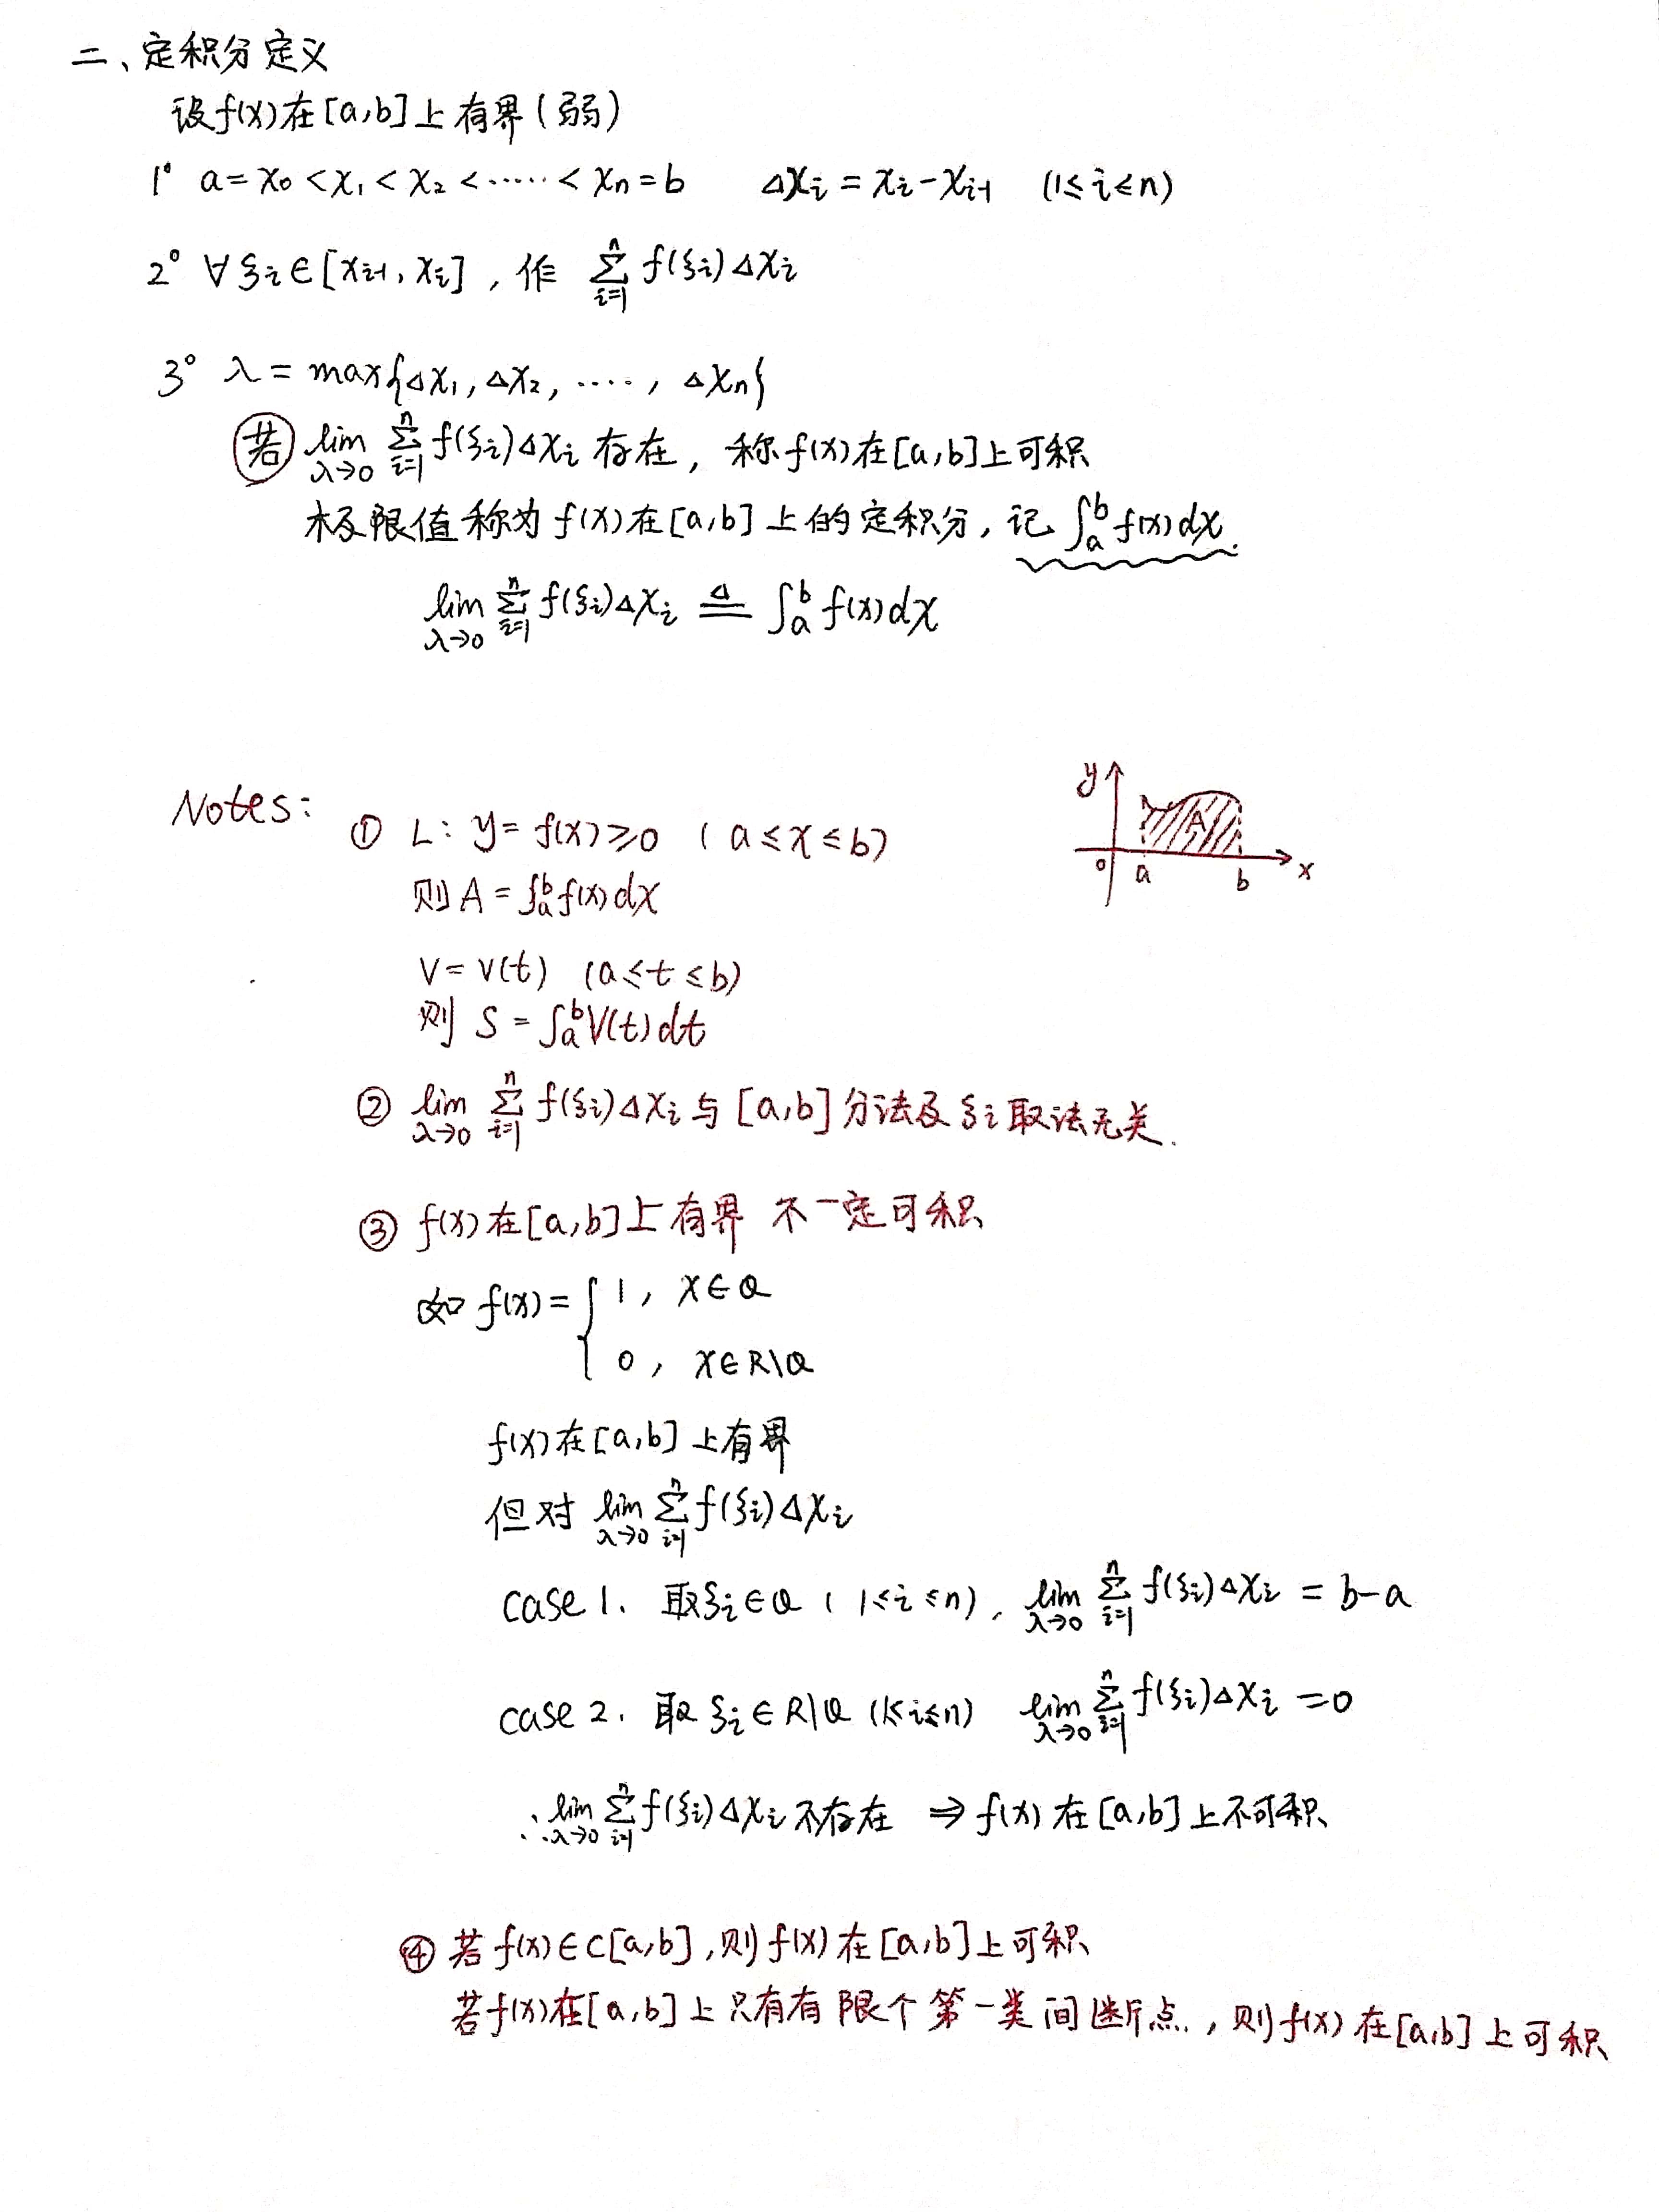 二、定积分定义
设f(x)在[a,b]上有界(弱)
1° a=x₀<x₁<x₂<……<xₙ=b Δxᵢ=xᵢ-xᵢ₋₁ (1≤i≤n)
2° ∀ξᵢ∈[xᵢ₋₁,xᵢ],作 ∑ᵢ₌₁ⁿ f(ξᵢ)Δxᵢ
3° λ=max{Δx₁,Δx₂,……,Δxₙ}
若 lim_{λ→0} ∑ᵢ₌₁ⁿ f(ξᵢ)Δxᵢ 存在,称f(x)在[a,b]上可积
极限值称为f(x)在[a,b]上的定积分,记 ∫ₐᵇ f(x)dx.
lim_{λ→0} ∑ᵢ₌₁ⁿ f(ξᵢ)Δxᵢ ≜ ∫ₐᵇ f(x)dx
Notes:
① L: y=f(x)≥0 (a≤x≤b)
y A 0 a b x
则A=∫ₐᵇ f(x)dx
V=V(t) (a≤t≤b)
则 S=∫ₐᵇ V(t)dt
② lim_{λ→0} ∑ᵢ₌₁ⁿ f(ξᵢ)Δxᵢ 与[a,b]分法及ξᵢ取法无关.
③ f(x)在[a,b]上有界 不一定可积
如 f(x)={ 1, x∈Q
0, x∈R\Q
f(x)在[a,b]上有界
但对 lim_{λ→0} ∑ᵢ₌₁ⁿ f(ξᵢ)Δxᵢ
case 1. 取ξᵢ∈Q (1≤i≤n), lim_{λ→0} ∑ᵢ₌₁ⁿ f(ξᵢ)Δxᵢ = b-a
case 2. 取ξᵢ∈R\Q (1≤i≤n) lim_{λ→0} ∑ᵢ₌₁ⁿ f(ξᵢ)Δxᵢ =0
∴ lim_{λ→0} ∑ᵢ₌₁ⁿ f(ξᵢ)Δxᵢ 不存在 ⇒ f(x)在[a,b]上不可积
④ 若f(x)∈C[a,b],则f(x)在[a,b]上可积
若f(x)在[a,b]上只有有限个第一类间断点,则f(x)在[a,b]上可积